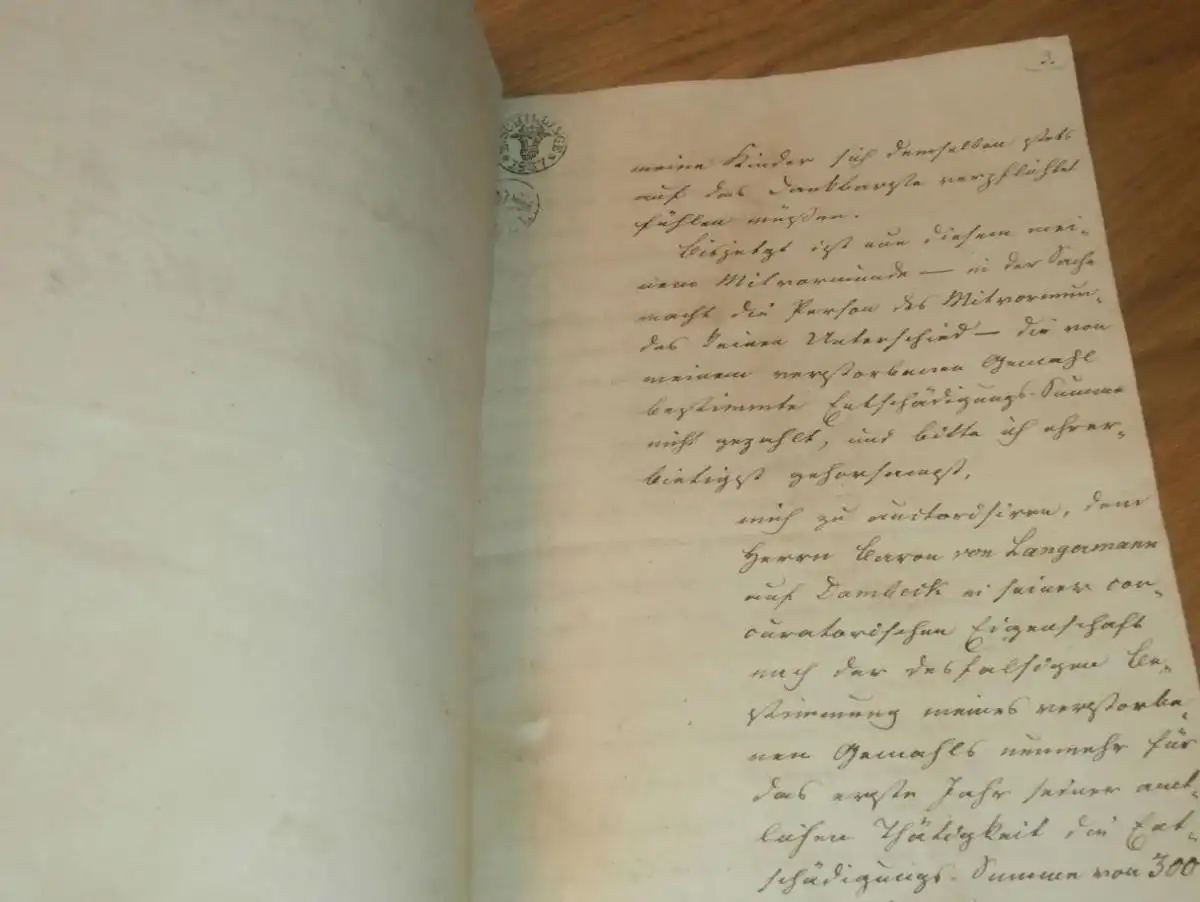 3.
SCHILLINGE
meine Kinder sich demselben stets
auf das dankbarste verpflichtet
fühlen müssen.
Bisjetzt ist nun diesem mei-
nem Mitvormunde — in der Sache
macht die Person des Mitvormun-
des keinen Unterschied — die von
meinem verstorbenen Gemahl
bestimmte Entschädigungs-Summe
nicht gezahlt, und bitte ich ehrer-
bietigst gehorsamst,
mich zu auctorisiren, dem
Herrn Baron von Langermann
auf Dambeck in seiner con-
curatorischen Eigenschaft
nach der desfalsigen Be-
stimmung meines verstorbe-
nen Gemahls nunmehr für
das erste Jahr seiner amt-
lichen Thätigkeit die Ent-
schädigungs-Summe von 300